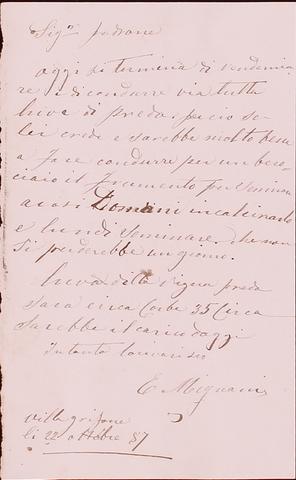 Sigr padrone
oggi si termina di vendemia
re e di condurre via tutta
luva di preda, perciò se
lei crede e sarebbe molto bene
a fare condurre per un bero
ciaio il frumento per semina
acosi Domani incalcinarlo
e lundi Seminare. che non
si perderebbe un giorno.
Luva dilla vigna preda
sara circa Corbe 35 Circa
sarebbe il carico doggi
Intanto
E Mignani
Villa grifone
li 22 ottobre 87